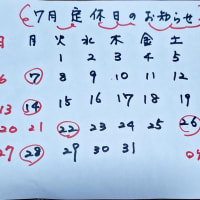 7月定休日のお知らせ
日 月 火 水 木 金 土
1 2 3 4 5
6 7 8 9 10 11 12
13 14 15 16 17 18 19
20 21 22 23 24 25 26
27 28 29 30 31